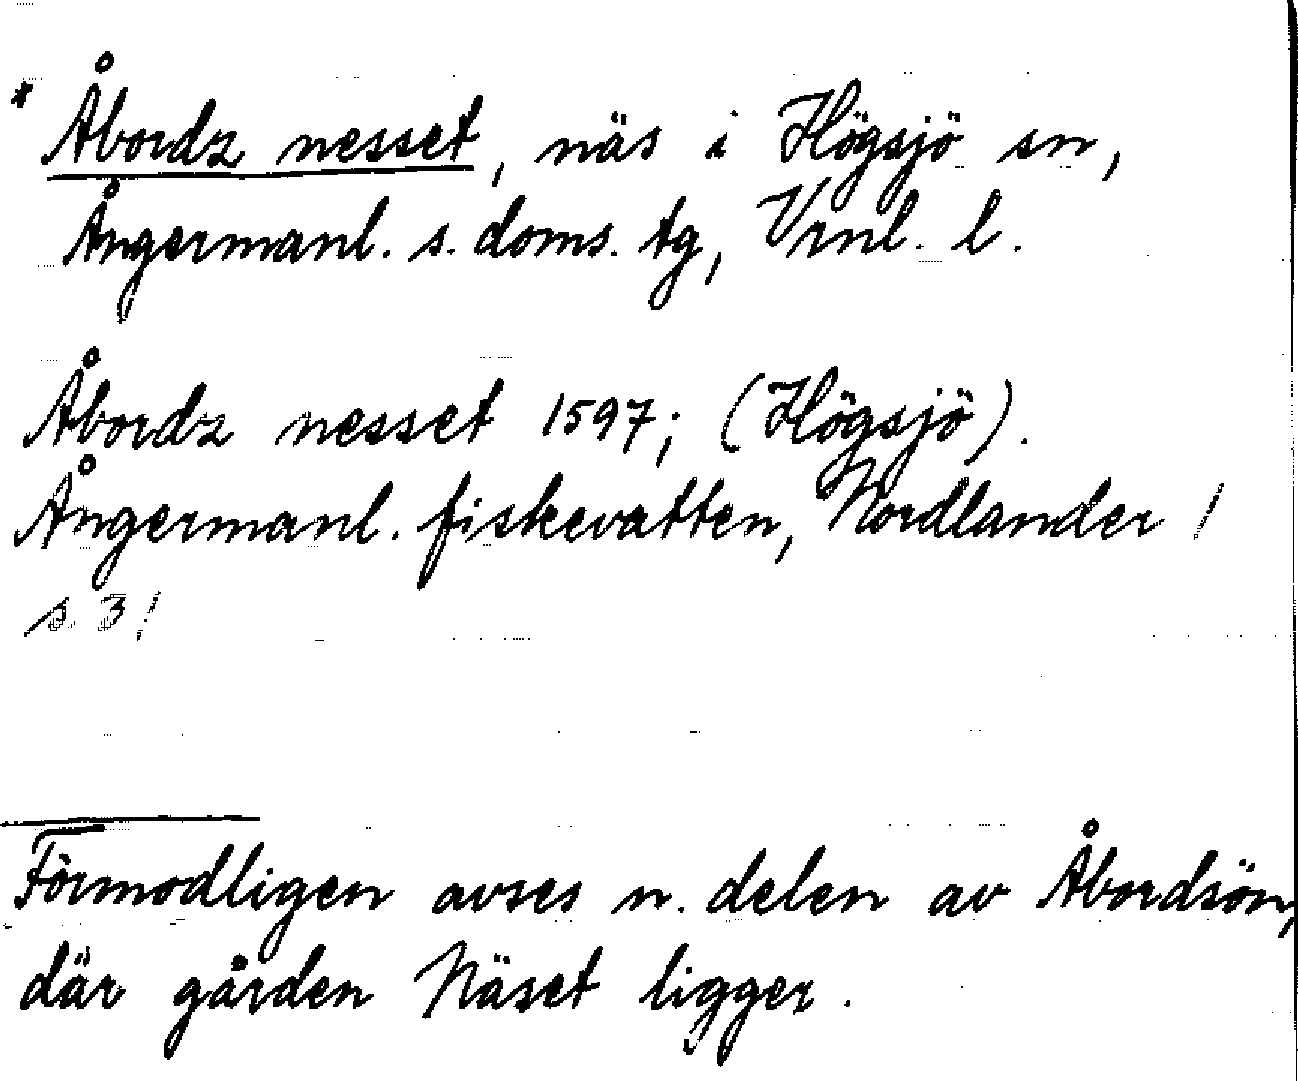 * Åbordz nesset, näs i Högsjö sn,
Ångermanl. s. doms. tg, Vrnl. l.
Åbordz nesset 1597; (Högsjö).
Ångermanl. fiskevatten, Nordlander !
s. 3!
Förmodligen avses n. delen av Åbordsön,
där gården Näset ligger.